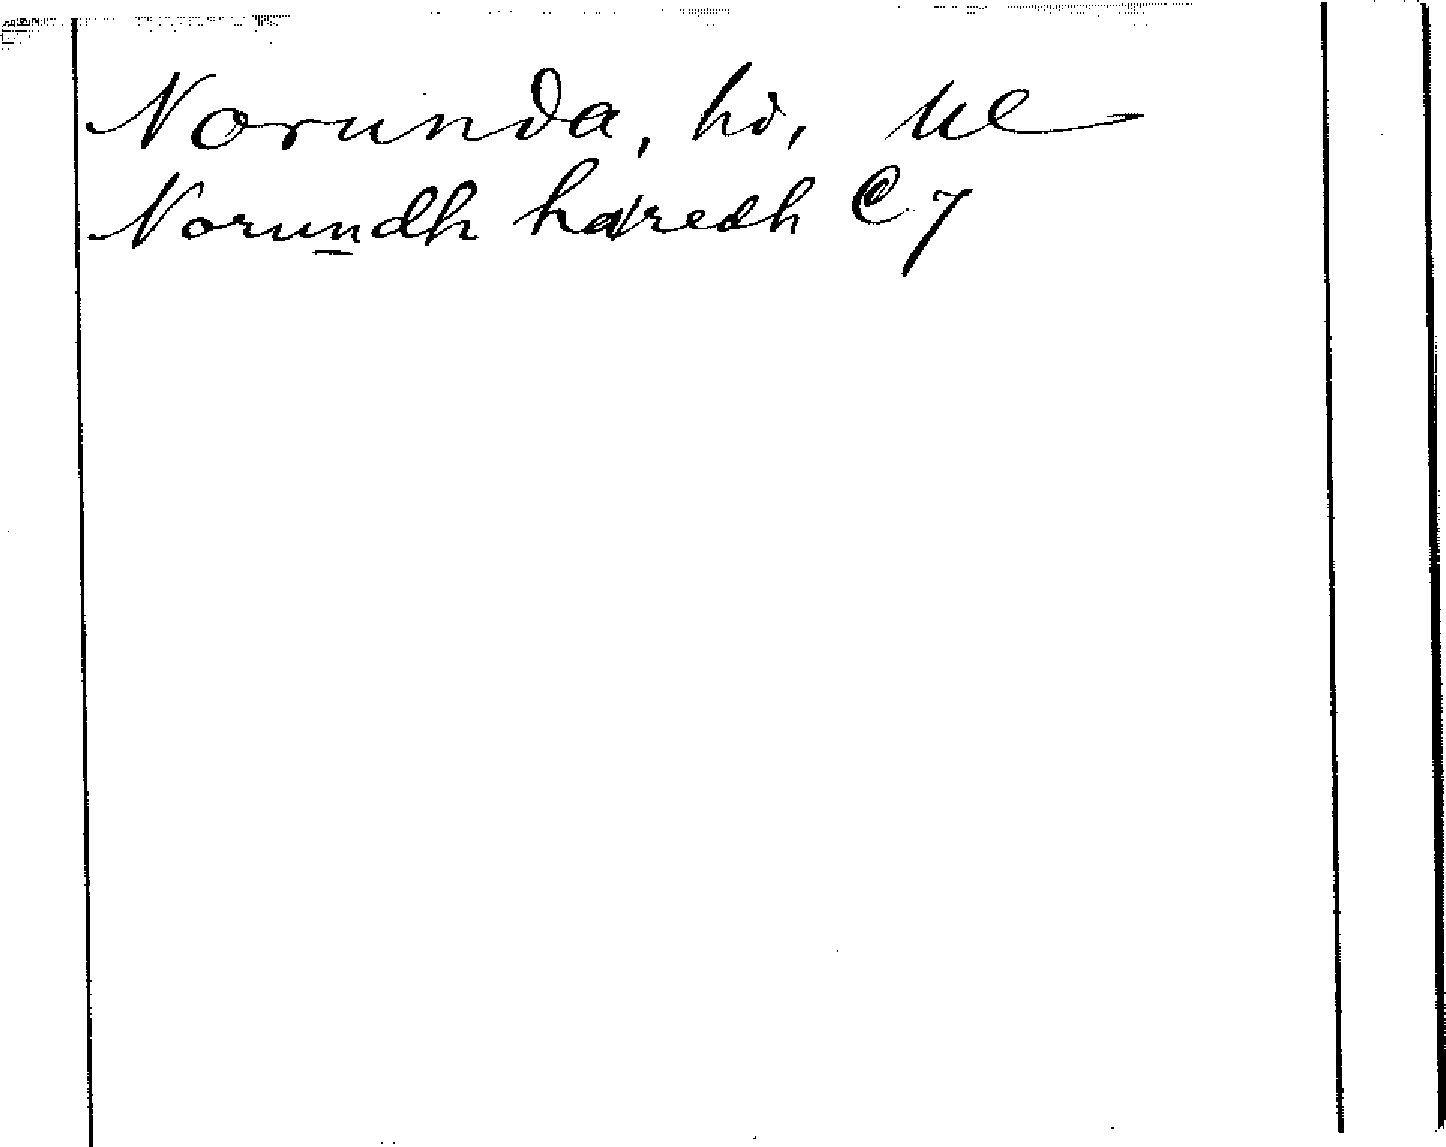 Norunda, hd, Ul
Norundh haredh C 7